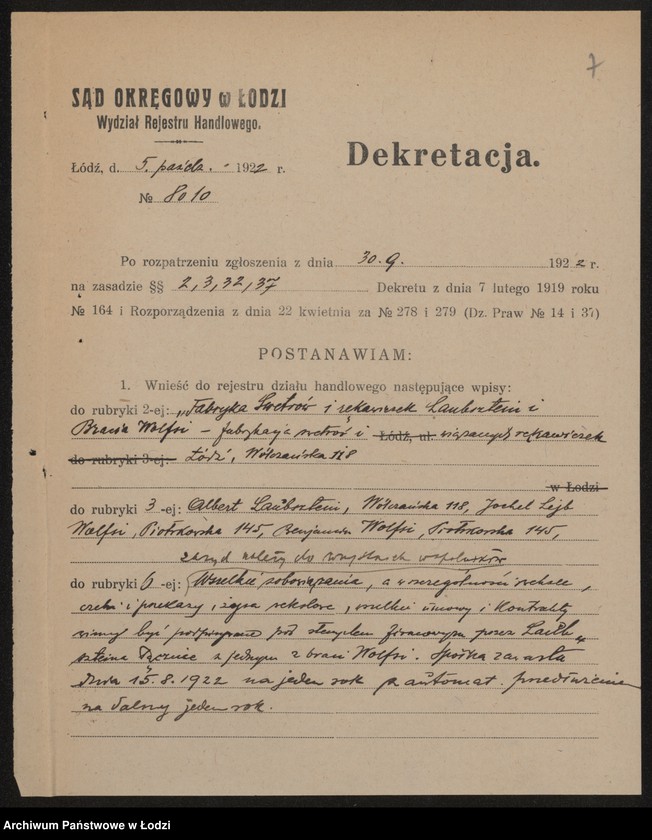 7
SĄD OKRĘGOWY w ŁODZI
Wydział Rejestru Handlowego.
Dekretacja.
Łódź, d. 5. paźdz. - 1922 r.
№ 8010
Po rozpatrzeniu zgłoszenia z dnia 30.9. 1922 r.
na zasadzie §§ 2, 3, 32, 37 Dekretu z dnia 7 lutego 1919 roku
№ 164 i Rozporządzenia z dnia 22 kwietnia za № 278 i 279 (Dz. Praw № 14 i 37)
POSTANAWIAM:
1. Wnieść do rejestru działu handlowego następujące wpisy:
do rubryki 2-ej: „Fabryka Swetrów i rękawiczek Laubsztein i
Bracia Wolfsi – fabrykacja swetrów i Łódź, ul. wiązanych rękawiczek
do rubryki 3-ej: Łódź, Wólczańska 118
w Łodzi
do rubryki 3-ej: Albert Laubsztein, Wólczańska 118, Jochel Lejb
Wolfsi, Piotrkowska 145, Benjamin Wolfsi, Piotrkowska 145,
zarząd należy do wszystkich wspólników
do rubryki 6-ej: Wszelkie zobowiązania, a w szczególności weksle,
czeki i przekazy, żyra wekslowe, wszelkie umowy i kontrakty
winny być podpisywane pod stemplem firmowym przez Laub„
szteina łącznie z jednym z braci Wolfsi. Spółka zawarta
dnia 15.8.1922 na jeden rok z automat. przedłużeniem
na dalszy jeden rok.
Archiwum Państwowe w Łodzi